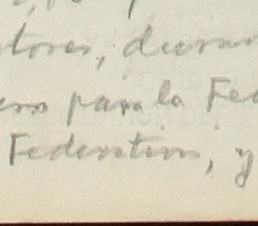 tores, duran
ero para la Fed
Federation, y